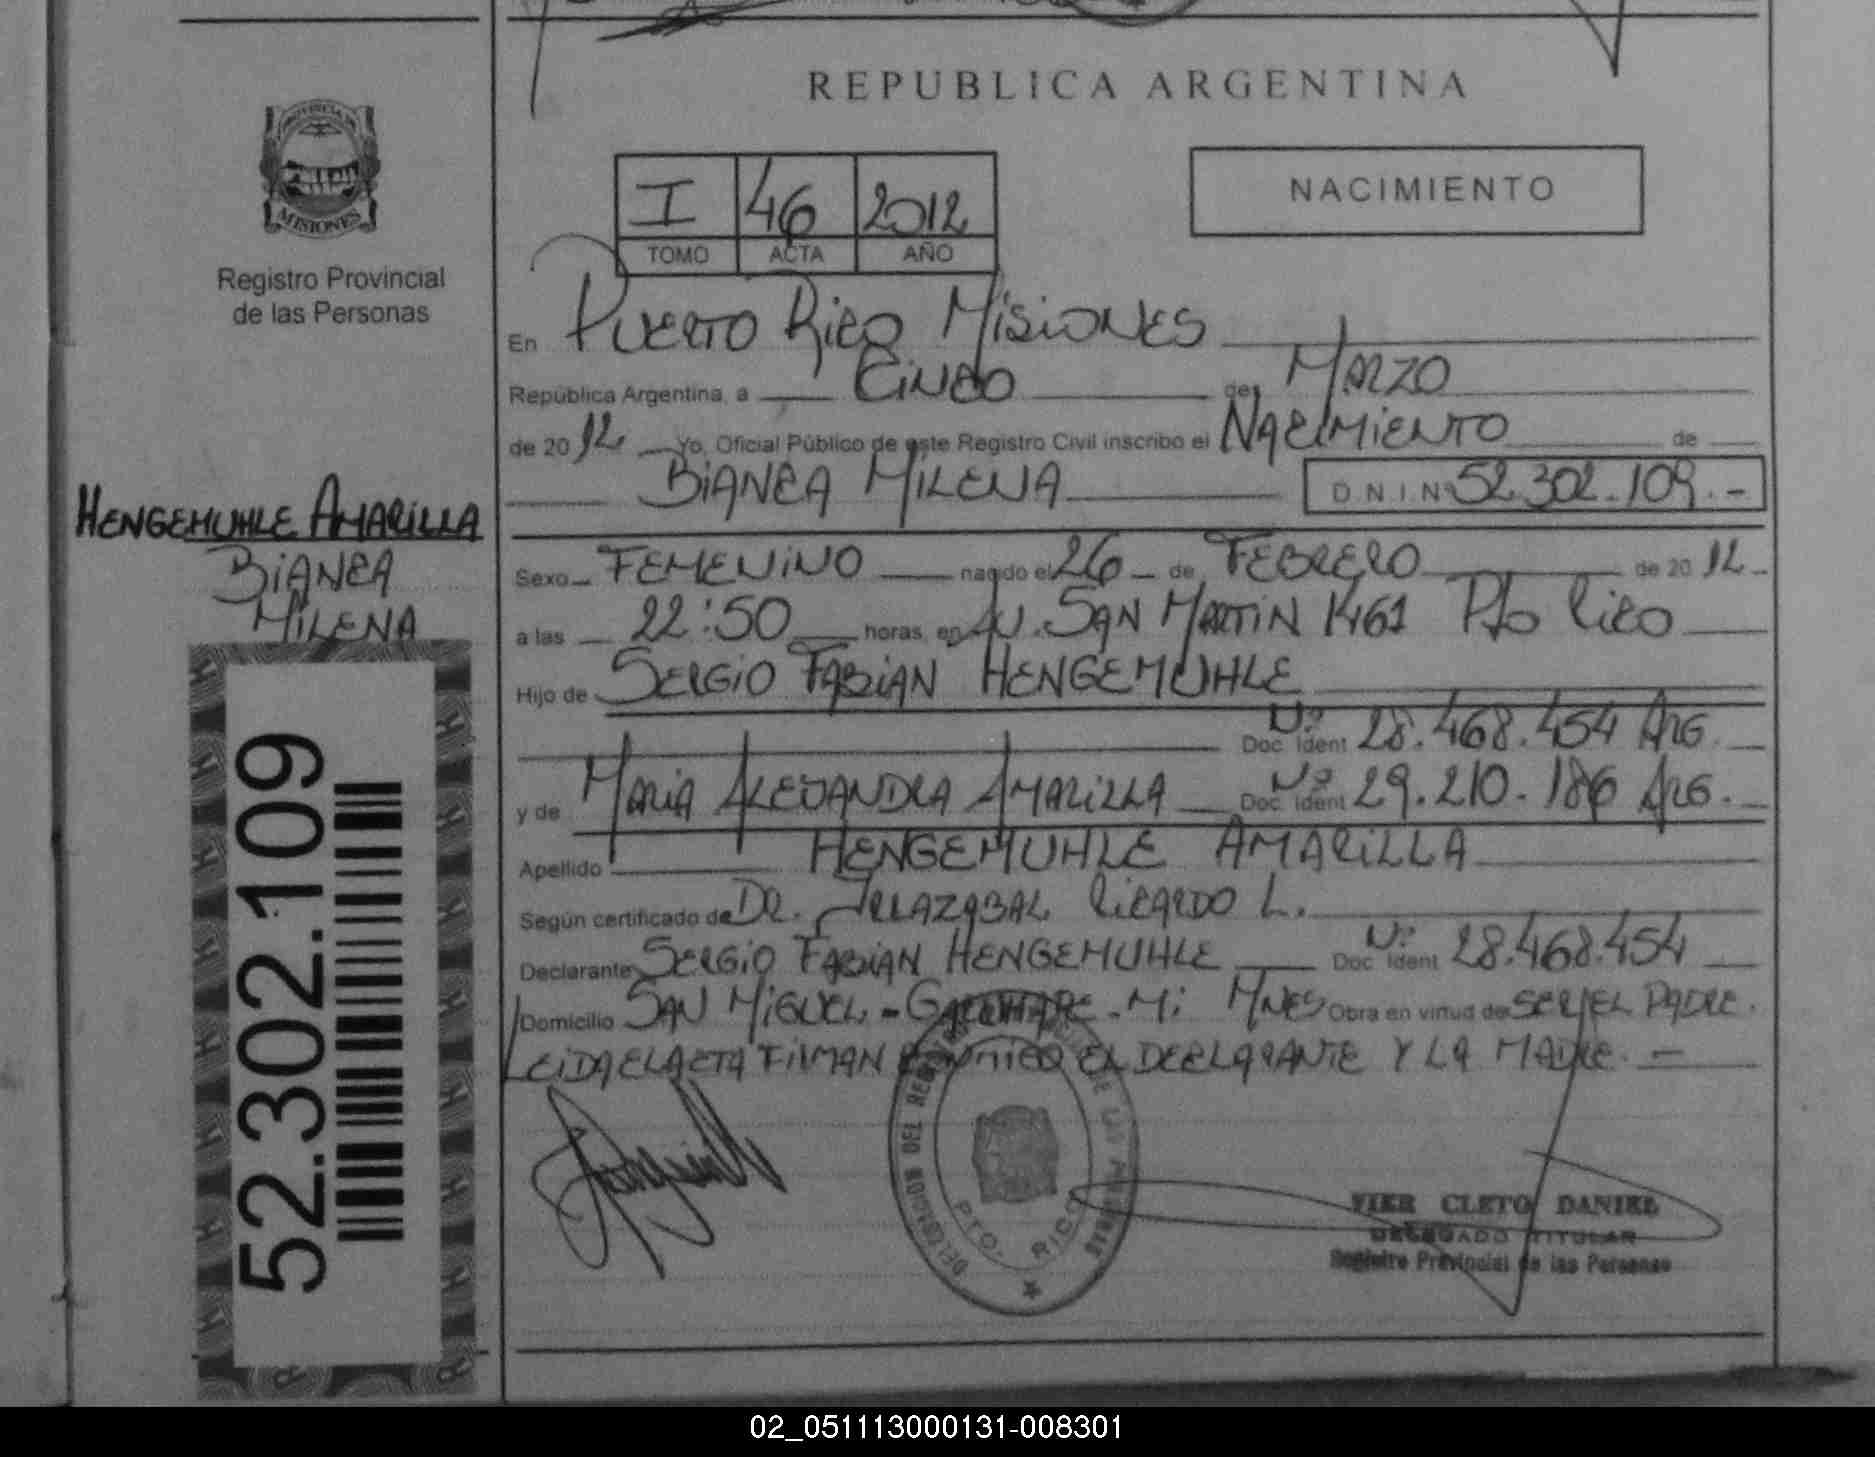 REPUBLICA ARGENTINA
PROVINCIA DE
MISIONES
Registro Provincial
de las Personas
I 46 2012
TOMO ACTA AÑO
NACIMIENTO
En PUERTO RICO MISIONES
República Argentina, a CINCO de MARZO
de 2012 Yo, Oficial Público de este Registro Civil inscribo el NACIMIENTO de
BIANCA MILENA D.N.I.Nº 52.302.109.-
HENGEMUHLE AMARILLA
BIANCA
MILENA
Sexo FEMENINO nacido el 26 de FEBRERO de 2012
a las 22:50 horas, en AV. SAN MARTIN 1461 Pto RICO
Hijo de SERGIO FABIAN HENGEMUHLE
Doc. Ident Nº 28.468.454 ARG.
y de MARIA ALEJANDRA AMARILLA Doc. Ident Nº 29.210.186 ARG.
Apellido HENGEMUHLE AMARILLA
Según certificado de DR. IRRAZABAL RICARDO L.
Declarante SERGIO FABIAN HENGEMUHLE Doc. Ident Nº 28.468.454
Domicilio SAN MIGUEL - GARUHAPE - Mi MNES Obra en virtud de SER EL PADRE.
LEIDA EL ACTA FIRMAN CONMIGO EL DECLARANTE Y LA MADRE. -
52.302.109
DELEGACION DEL REGISTRO DE LAS PERSONAS
PTO. RICO
VIER CLETO DANIEL
DELEGADO TITULAR
Registro Provincial de las Personas
02_051113000131-008301